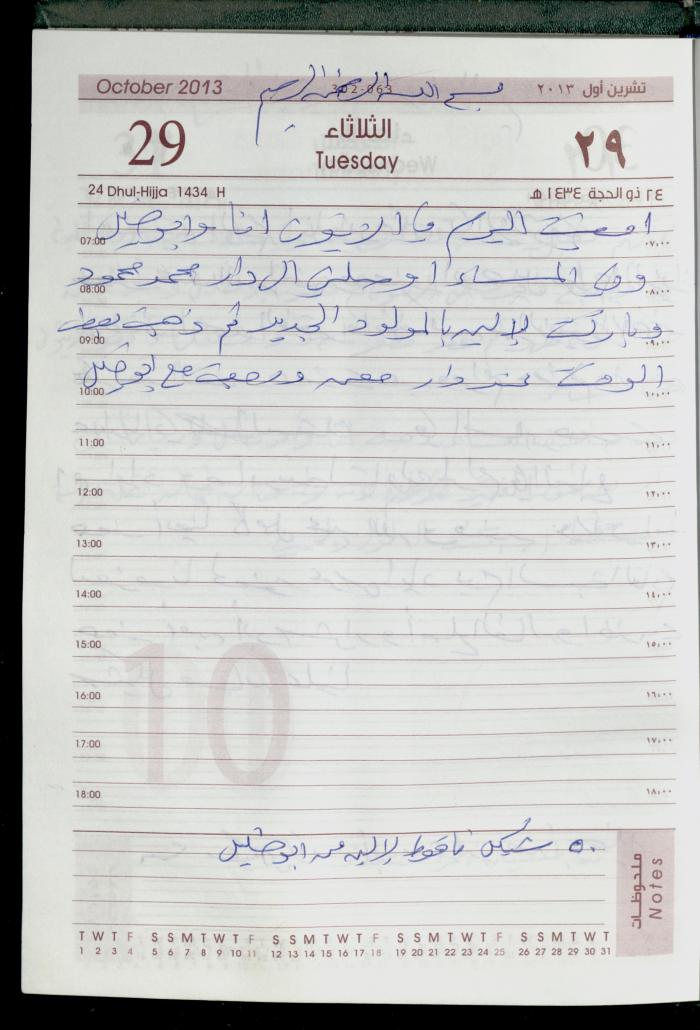 October 2013
302-063
تشرين أول ٢٠١٣
بسم الله الرحمن الرحيم
29
الثلاثاء
Tuesday
٢٩
24 Dhul-Hijja 1434 H
٢٤ ذو الحجة ١٤٣٤ هـ
امضيت اليوم في الزيتون انا وابو خليل
07:00 ٠٧:٠٠
وفي المساء اوصلني الى دار محمد محمود
08:00 ٠٨:٠٠
وباركت لإليه بالمولود الجديد ثم ذهبت بعض
09:00 ٠٩:٠٠
الوقت عند دار ورجعت مع ابو خليل
10:00 ١٠:٠٠
11:00 ١١:٠٠
12:00 ١٢:٠٠
13:00 ١٣:٠٠
14:00 ١٤:٠٠
15:00 ١٥:٠٠
16:00 ١٦:٠٠
17:00 ١٧:٠٠
18:00 ١٨:٠٠
10
٥٠ شيكل ناقوط لإليه من ابو خليل
ملحوظات
Notes
T W T F S S M T W T F S S M T W T F S S M T W T F S S M T W T
1 2 3 4 5 6 7 8 9 10 11 12 13 14 15 16 17 18 19 20 21 22 23 24 25 26 27 28 29 30 31